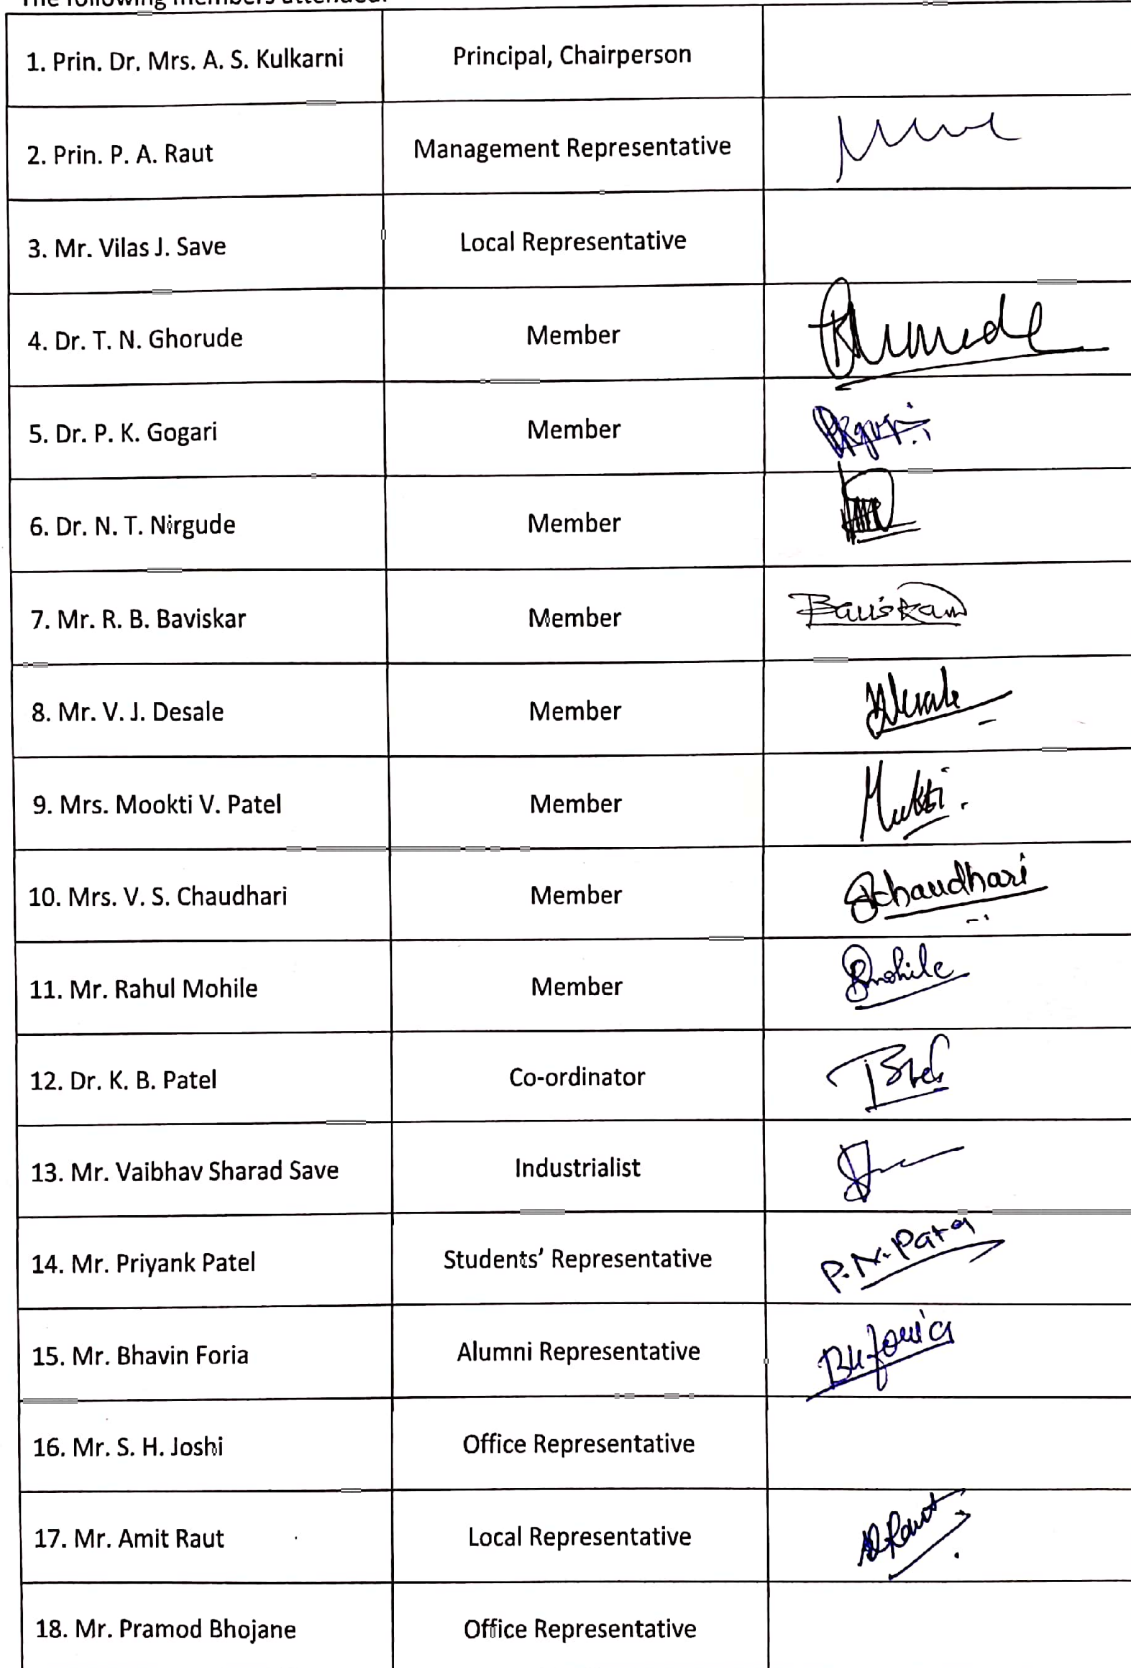 The following members attended:
1. Prin. Dr. Mrs. A. S. Kulkarni Principal, Chairperson
2. Prin. P. A. Raut Management Representative
3. Mr. Vilas J. Save Local Representative
4. Dr. T. N. Ghorude Member
5. Dr. P. K. Gogari Member
6. Dr. N. T. Nirgude Member
7. Mr. R. B. Baviskar Member Baviskar
8. Mr. V. J. Desale Member
9. Mrs. Mookti V. Patel Member Mukti.
10. Mrs. V. S. Chaudhari Member Chaudhari
11. Mr. Rahul Mohile Member Rmohile
12. Dr. K. B. Patel Co-ordinator
13. Mr. Vaibhav Sharad Save Industrialist
14. Mr. Priyank Patel Students' Representative P. N. Patel
15. Mr. Bhavin Foria Alumni Representative
16. Mr. S. H. Joshi Office Representative
17. Mr. Amit Raut Local Representative
18. Mr. Pramod Bhojane Office Representative